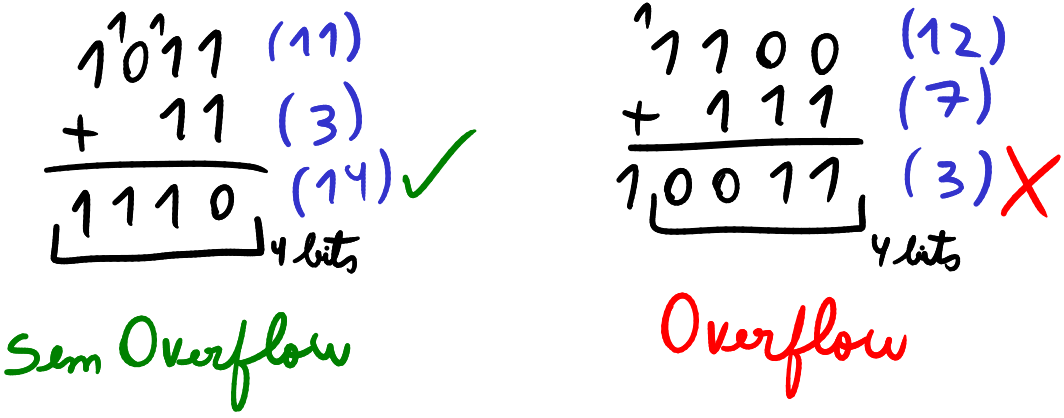 1 1
1011 (11)
+ 11 (3)
1110 (14)
4 bits
Sem Overflow
1
1100 (12)
+ 111 (7)
10011 (3)
4 bits
Overflow